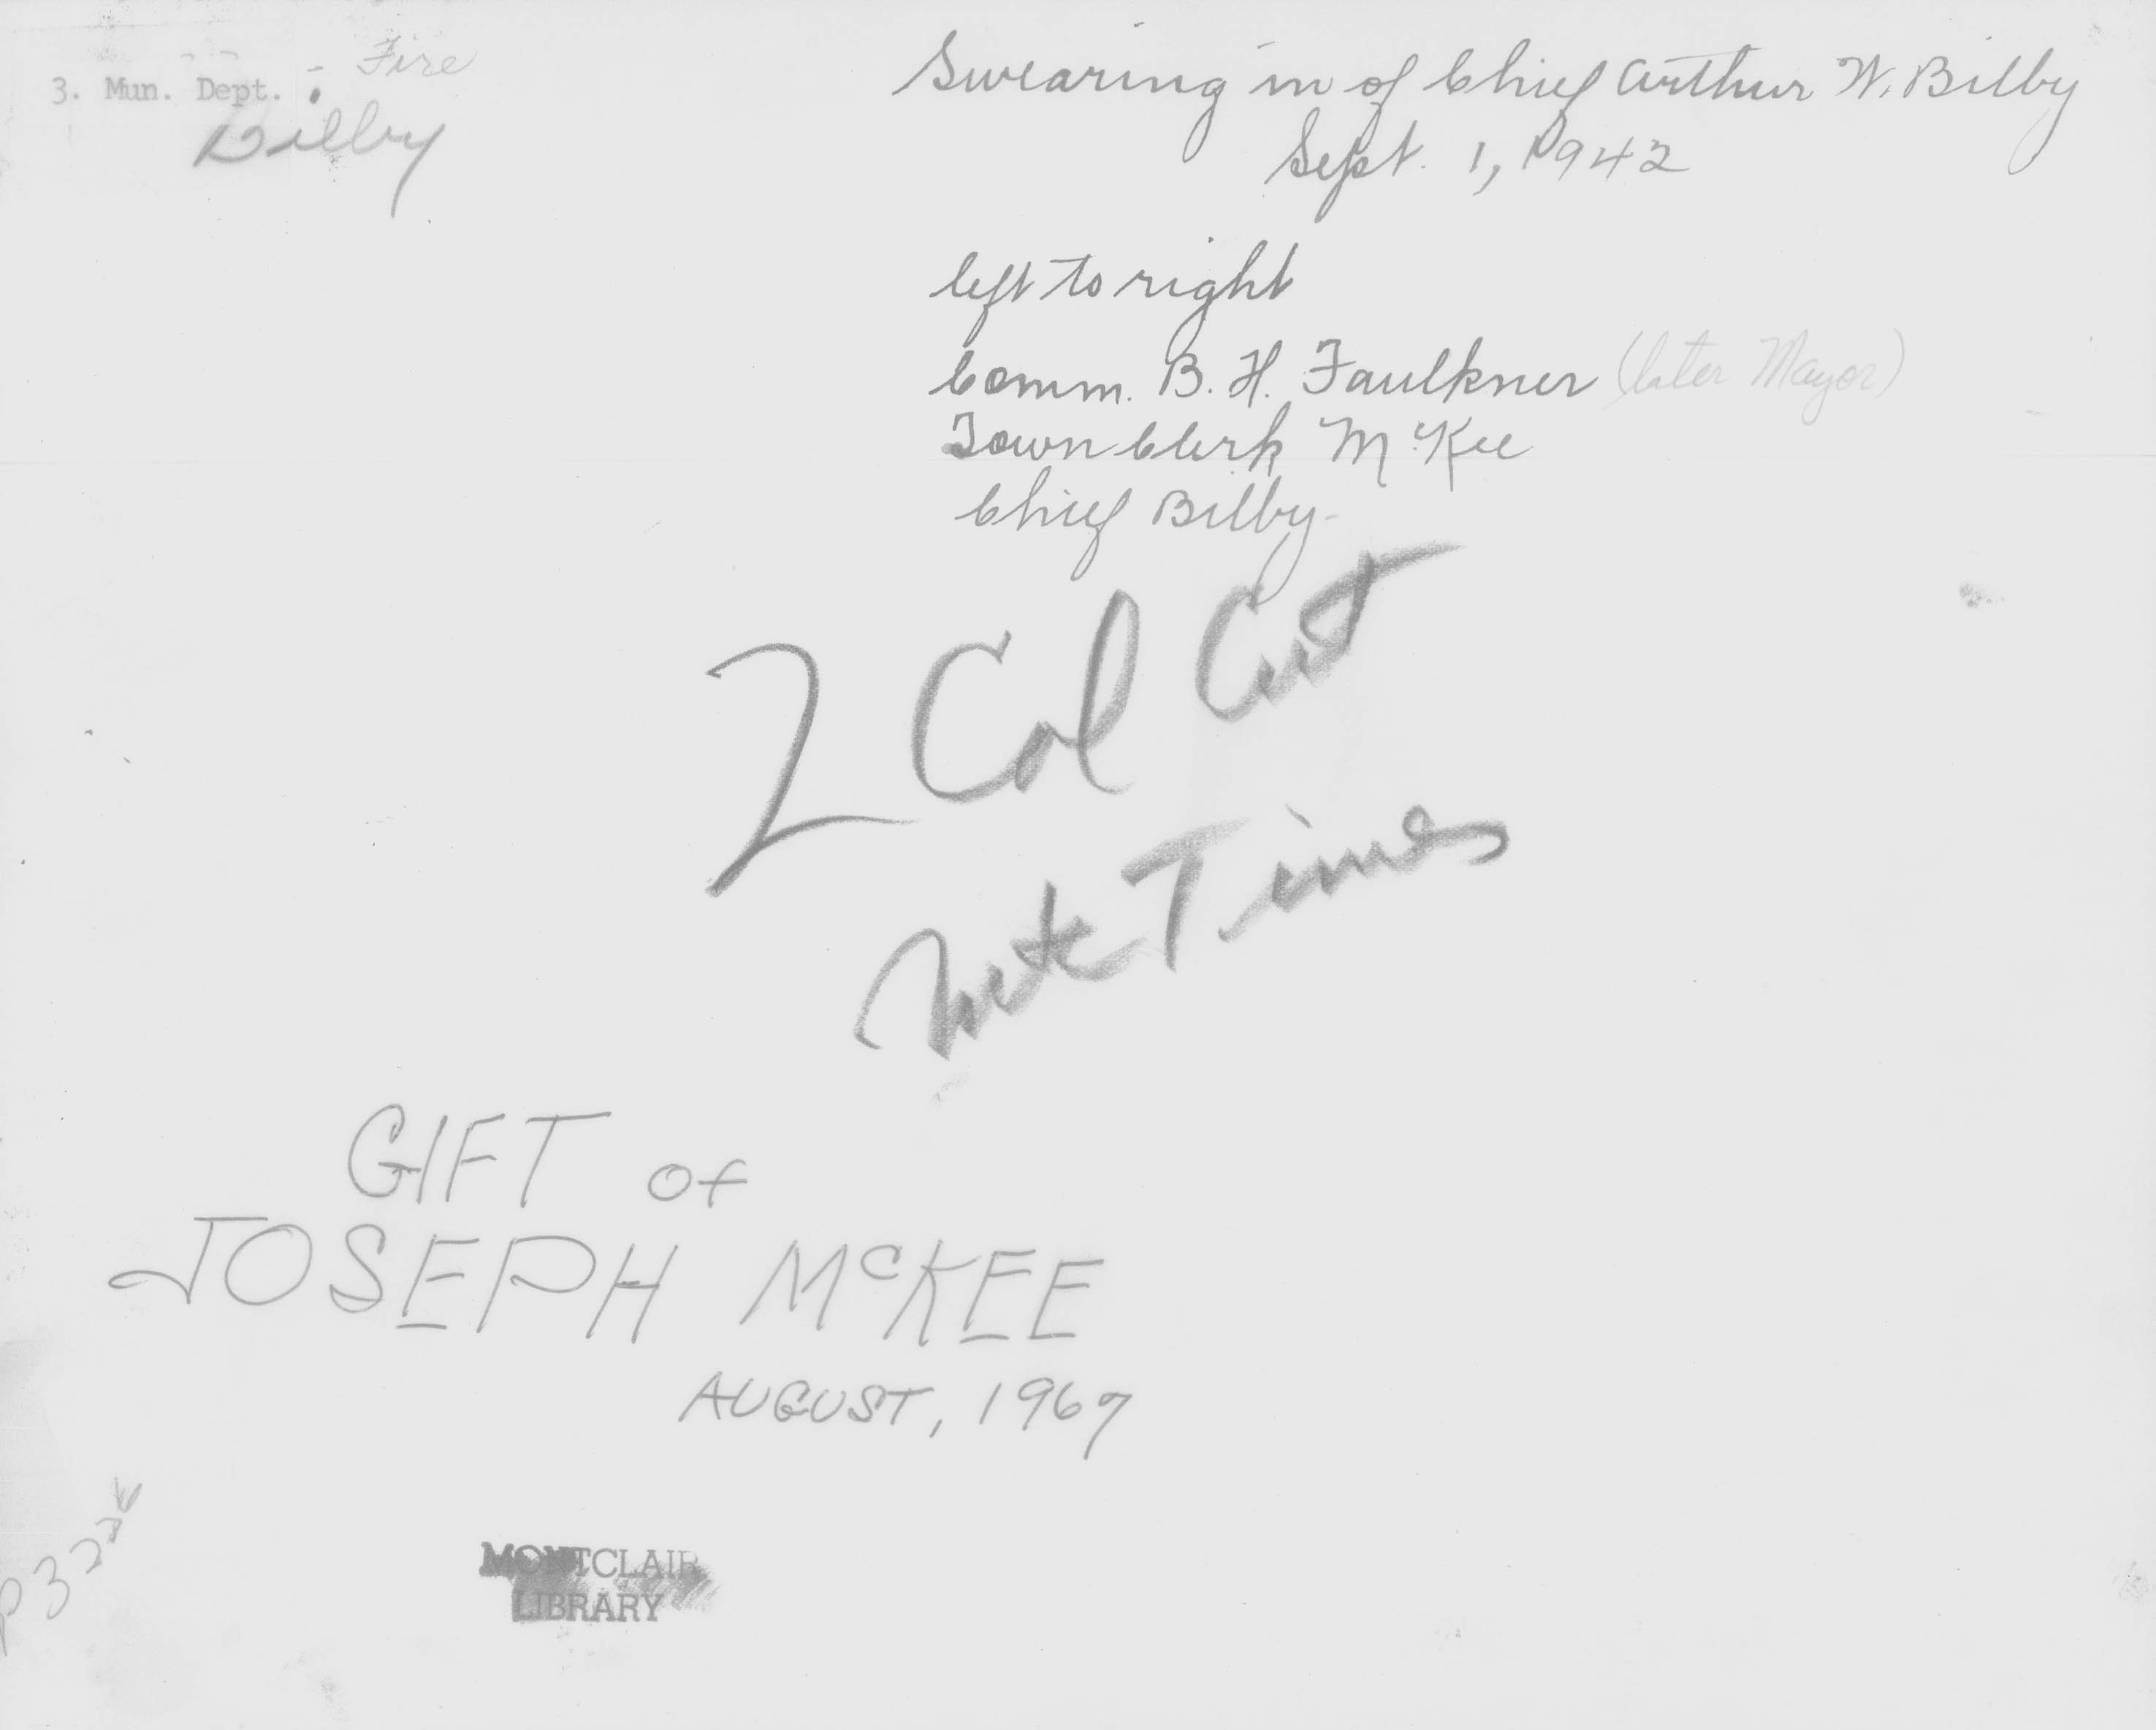 3. Mun. Dept. : - Fire
Bilby
Swearing in of Chief Arthur W. Bilby
Sept. 1, 1942
left to right
Comm. B. H. Faulkner (later Mayor)
Town Clerk McKee
Chief Bilby
2 Col Cut
Mtc Times
GIFT of
JOSEPH McKEE
AUGUST, 1967
MONTCLAIR
LIBRARY